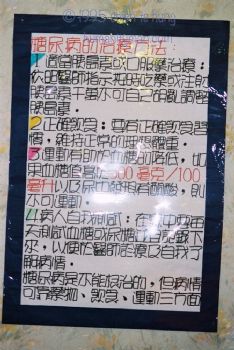 糖尿病的治療方法
1適當胰島素或口服藥治療:
依照醫師指示按時吃藥或注射
胰島素千萬不可自己胡亂調整
胰島素.
2正確飲食:要有正確飲食習
慣,維持正常的理想體重.
3運動有助於血糖的降低,如
果血糖值高於300毫克/100
毫升以及尿中離酮有酮酸,則
不可運動.
4病人自我測試:在家中每
天測試血糖或尿糖中並記錄下
來,以便於醫師治療以及自我了
解病情.
糖尿病是不能根治的,但病情
可靠藥物、飲食、運動三方面